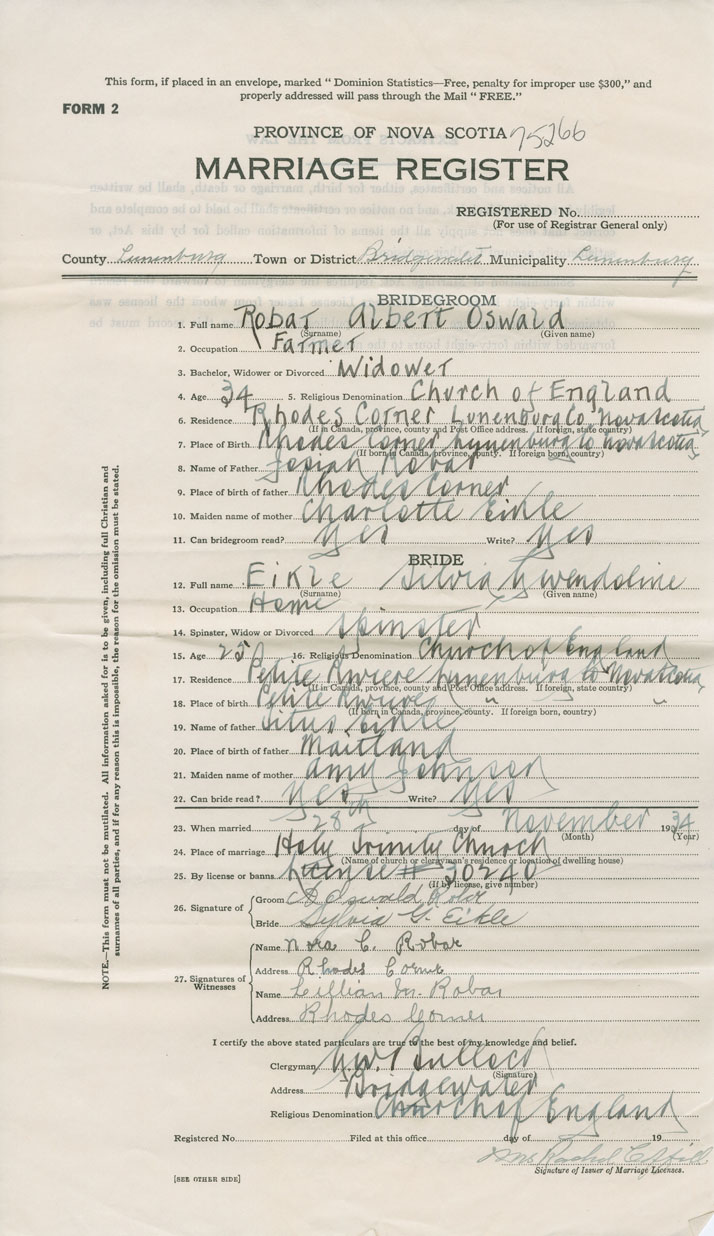 This form, if placed in an envelope, marked " Dominion Statistics—Free, penalty for improper use $300," and
properly addressed will pass through the Mail " FREE."
FORM 2
PROVINCE OF NOVA SCOTIA 75266
MARRIAGE REGISTER
REGISTERED No.
(For use of Registrar General only)
County Lunenburg Town or District Bridgewater Municipality Lunenburg
BRIDEGROOM
1. Full name Robar Albert Oswald
(Surname) (Given name)
2. Occupation Farmer
3. Bachelor, Widower or Divorced Widower
4. Age 34 5. Religious Denomination Church of England
6. Residence Rhodes Corner Lunenburg Co Nova Scotia
(If in Canada, province, county and Post Office address. If foreign, state country)
7. Place of Birth Rhodes Corner Lunenburg Co Nova Scotia
(If born in Canada, province, county. If foreign born, country)
8. Name of Father Josiah Robar
9. Place of birth of father Rhodes Corner
10. Maiden name of mother Charlotte Eikle
11. Can bridegroom read? yes Write? yes
BRIDE
12. Full name Eikle Silvia Gwendoline
(Surname) (Given name)
13. Occupation Home
14. Spinster, Widow or Divorced spinster
15. Age 25 16. Religious Denomination Church of England
17. Residence Petite Riviere Lunenburg Co Nova Scotia
(If in Canada, province, county and Post Office address. If foreign, state country)
18. Place of Birth Petite Riviere " "
(If born in Canada, province, county. If foreign born, country)
19. Name of father Titus Eikle
20. Place of birth of father Maitland
21. Maiden name of mother Amy Johnson
22. Can bride read? yes Write? yes
23. When married 28th day of November 1934
(Month) (Year)
24. Place of marriage Holy Trinity Church
(Name of church or clergyman's residence or location of dwelling house)
25. By license or banns License # 30240
(If by license, give number)
26. Signature of Groom A Oswald Robar
Bride Sylvia G. Eikle
27. Signatures of Witnesses
Name Nora C. Robar
Address Rhodes Corner
Name Lillian M. Robar
Address Rhodes Corner
I certify the above stated particulars are true to the best of my knowledge and belief.
Clergyman Bullock
(Signature)
Address Bridgewater
Religious Denomination Church of England
Registered No. Filed at this office day of 19
Mrs Rachel
Signature of Issuer of Marriage Licenses.
[SEE OTHER SIDE]
NOTE.—This form must not be mutilated. All information asked for is to be given, including full Christian and
surnames of all parties, and if for any reason this is impossible, the reason for the omission must be stated.